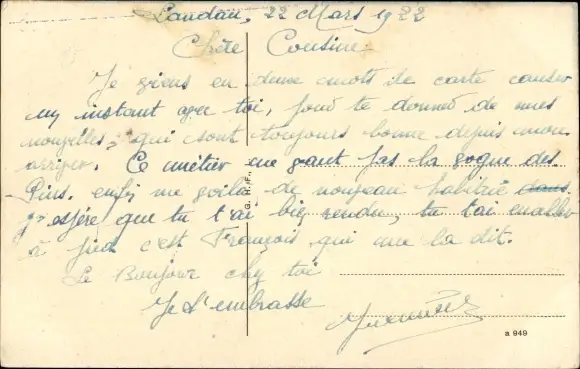 Landau, 22 Mars 1922
Chère Cousine
Je viens en deux mots de carte causer
un instant avec toi, pour te donner de mes
nouvelles, qui sont toujours bonne depuis mon
arriver. Ce métier ne vaut pas la vogue des
Pins. enfin me voila de nouveau habitué dans
j'espère que tu t'ai bien rendu, tu t'ai en aller
à pied c'est François qui me la dit.
Le Bonjour chez toi
Je t'embrasse
G. H., F.,
a 949